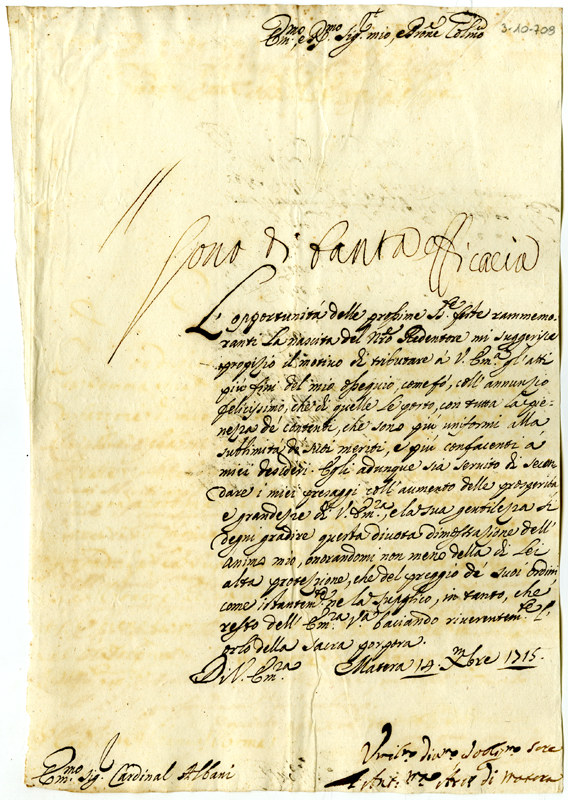 Em.mo, e R.mo Sig.r mio, e Pron̄e Col.mo
3-10-709
Sono di tanta efficacia
L'opportunità delle prossime S.te feste rammemo-
ranti la nascita del N.ro Redentore mi suggerisce
propizio il motivo di tributare à V. Em.za gl'atti
più fini del mio ossequio, come fò, coll'annunzio
felicissimo, che di quelle le porto, con tutta la pie-
nezza de contenti, che sono più uniformi alla
sublimità de suoi meriti, e più confacenti a
miei desideri. Egli adunque sia servito di secon-
dare i miei presaggi coll'aumento delle prosperità
e grandezze di V. Em.za, e la sua gentilezza si
degni gradire questa divota dimostrazione dell'
animo mio, onorandomi non meno della di Lei
alta protezione, che del preggio de' suoi ordini
come istantem.te ne la supplico, in tanto, che
resto dell'Em.za V.ra baciando riverentem.te l'
orlo della sacra porpora.
Di V. Em.za Matera 14 Xbre 1715.
Em.mo Sig. Cardinal Albani
di Matera